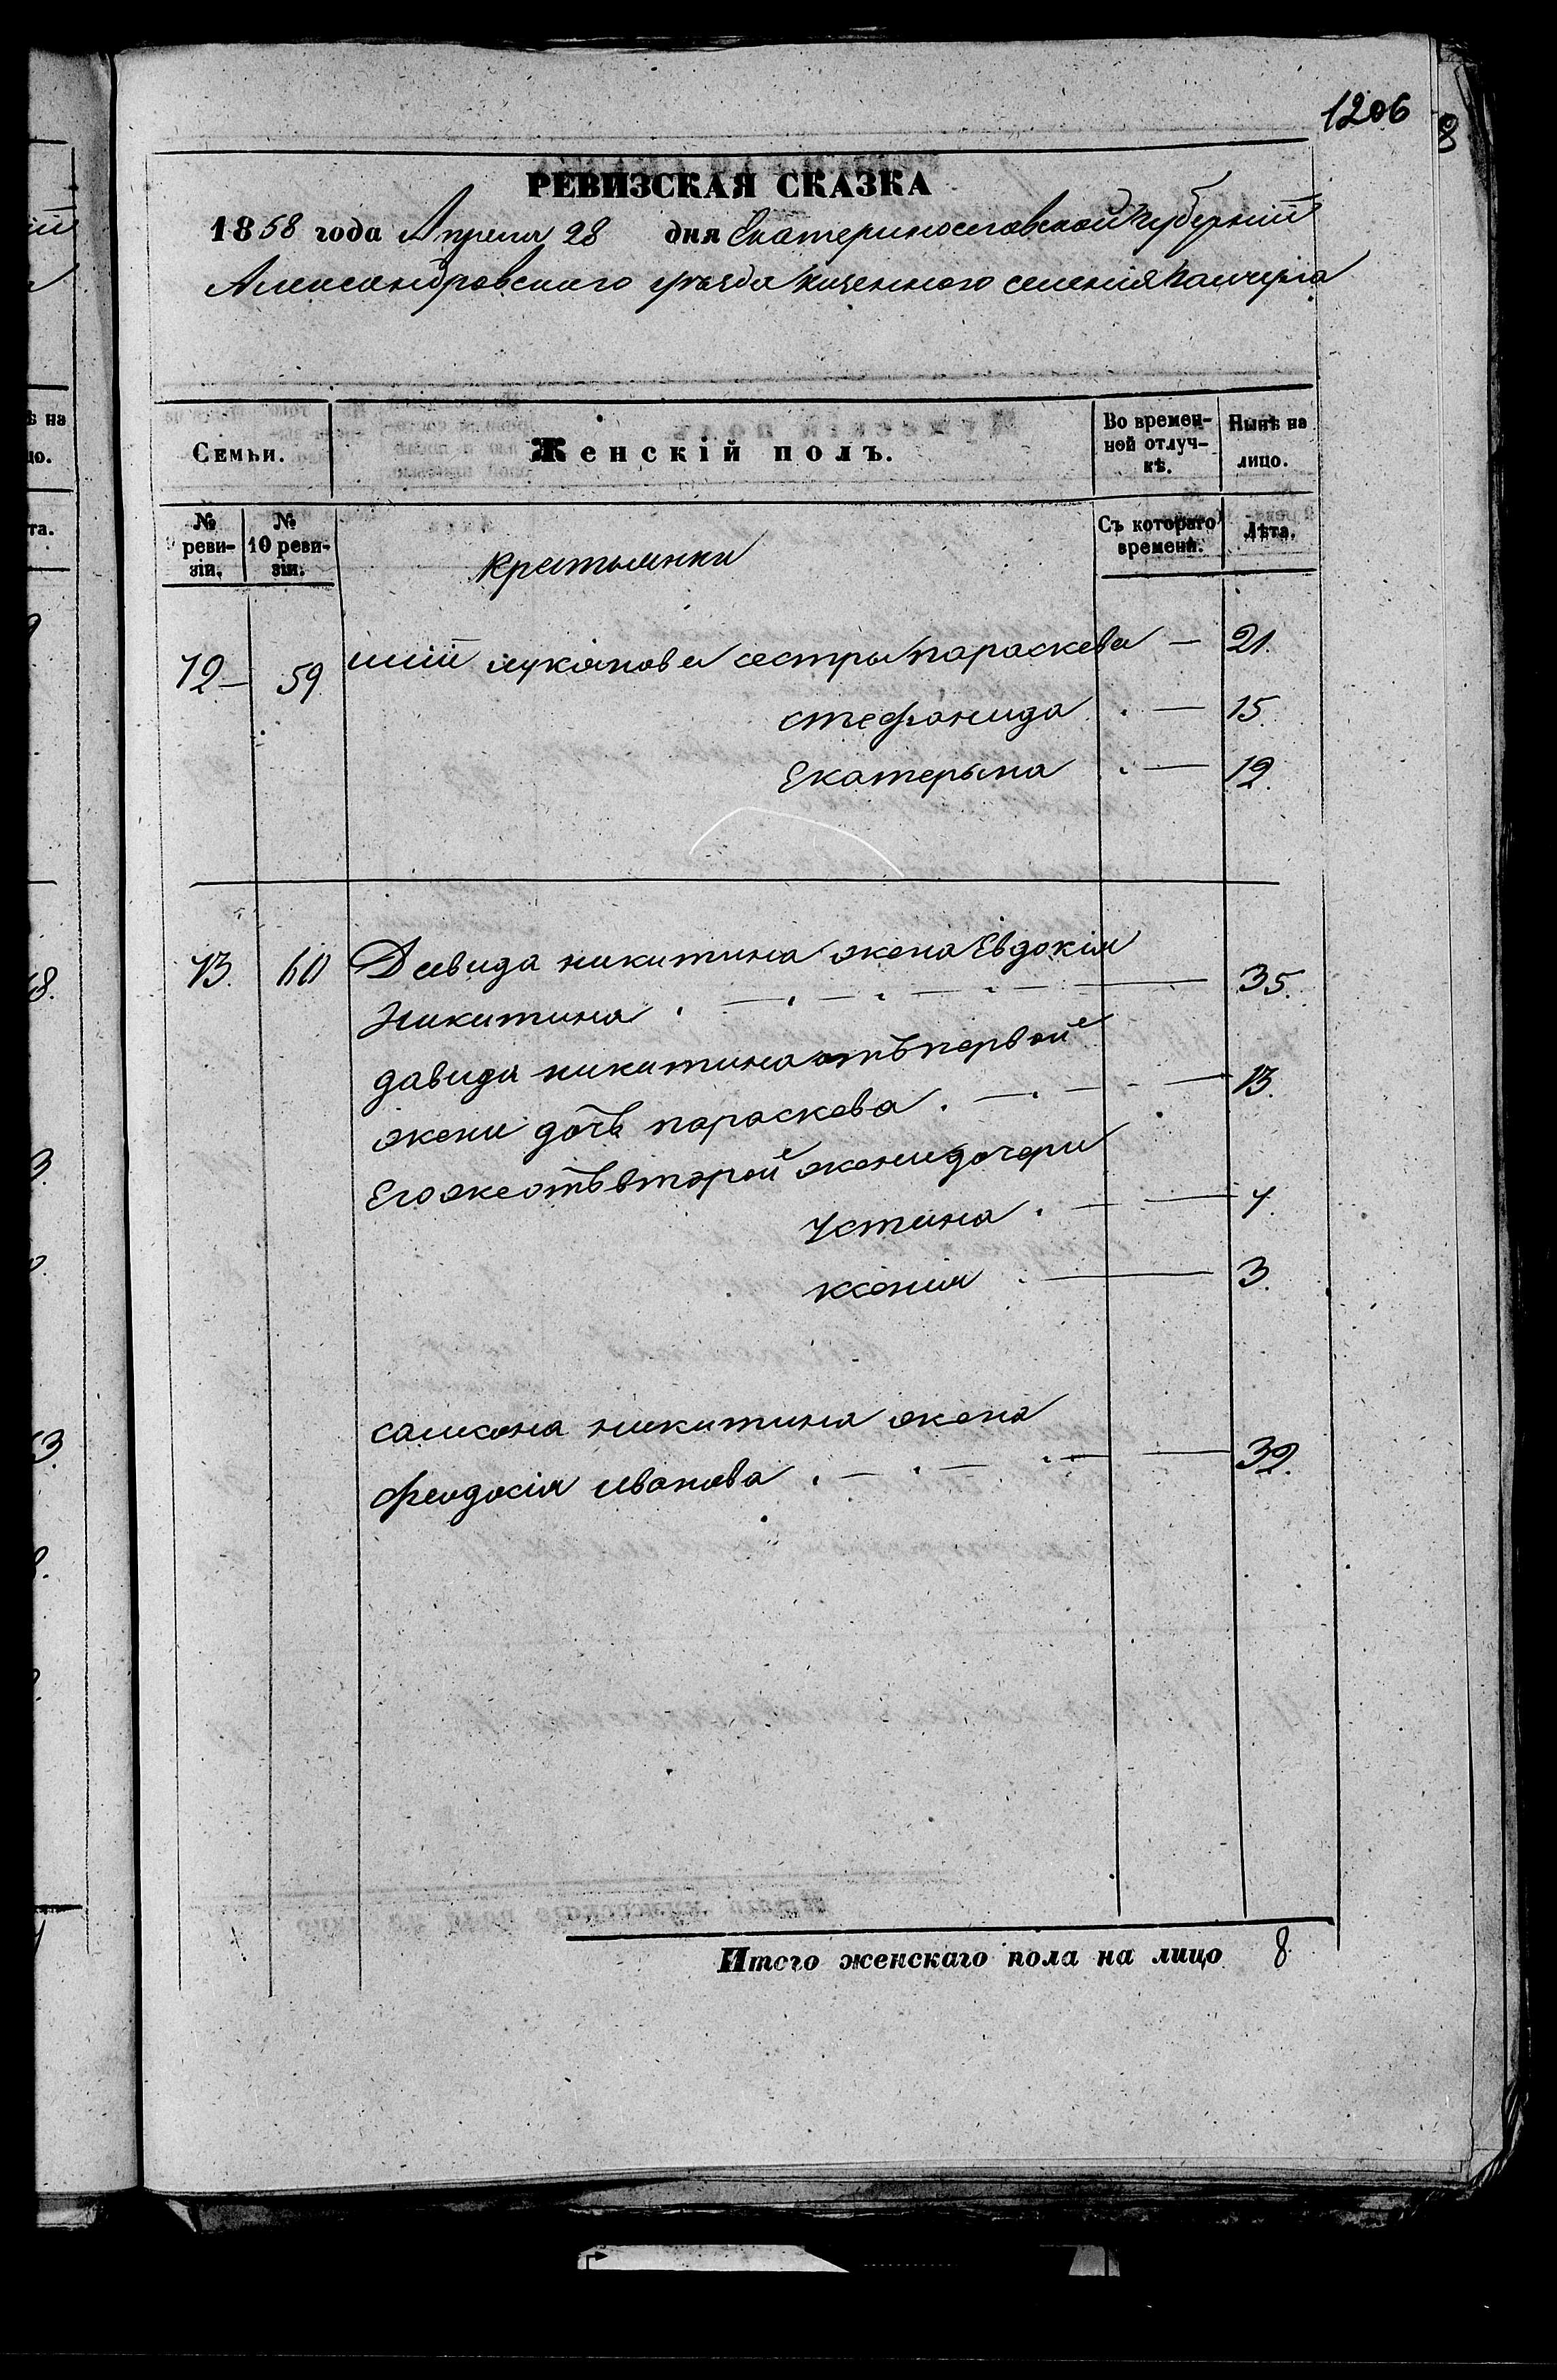 1206
РЕВИЗСКАЯ СКАЗКА
1858 года Апреля 28 дня Екатеринославской Губерній
Александровского уѣзда казенного селенія
Семьи. Женскій полъ. Во времен-ной отлуч-кѣ. Нынѣ на лицо.
№ реви-зіи. № 10 реви-зіи. Съ котораго времени. Лѣта.
крестьянки
72 59 лукянова сестры параскева 21.
стефанида 15.
Екатерына 12.
73. 60 Давида никитина жена Евдокія
Никитина 35.
давида никитина отъ первой
жены дочь параскева 13.
Его же отъ второй жены дочери
Устина 7.
ксенія 3.
самсона никитина жена
феодосія иванова 32.
Итого женскаго пола на лицо 8.